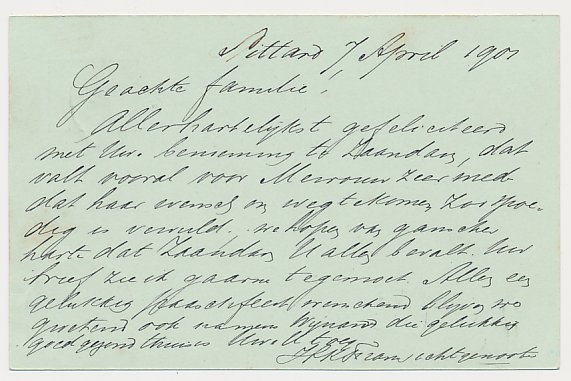 Sittard 7 April 1901
Geachte familie!
Allerhartelijkst gefeliciteerd
met Uw. benoeming te Zaandam, dat
valt vooral voor Mevrouw zeer mede
dat haar wensch om weg te komen zoo spoe-
dig is vervuld. we hopen van ganscher
harte dat Zaandam U allen bevalt. Uw
brief zie ik gaarne tegemoet. Allen een
gelukkig paaschfeest wenschend blijven we
groetend ook namens Wijnand die gelukkig
goed gezond thuis is
echtgenoote